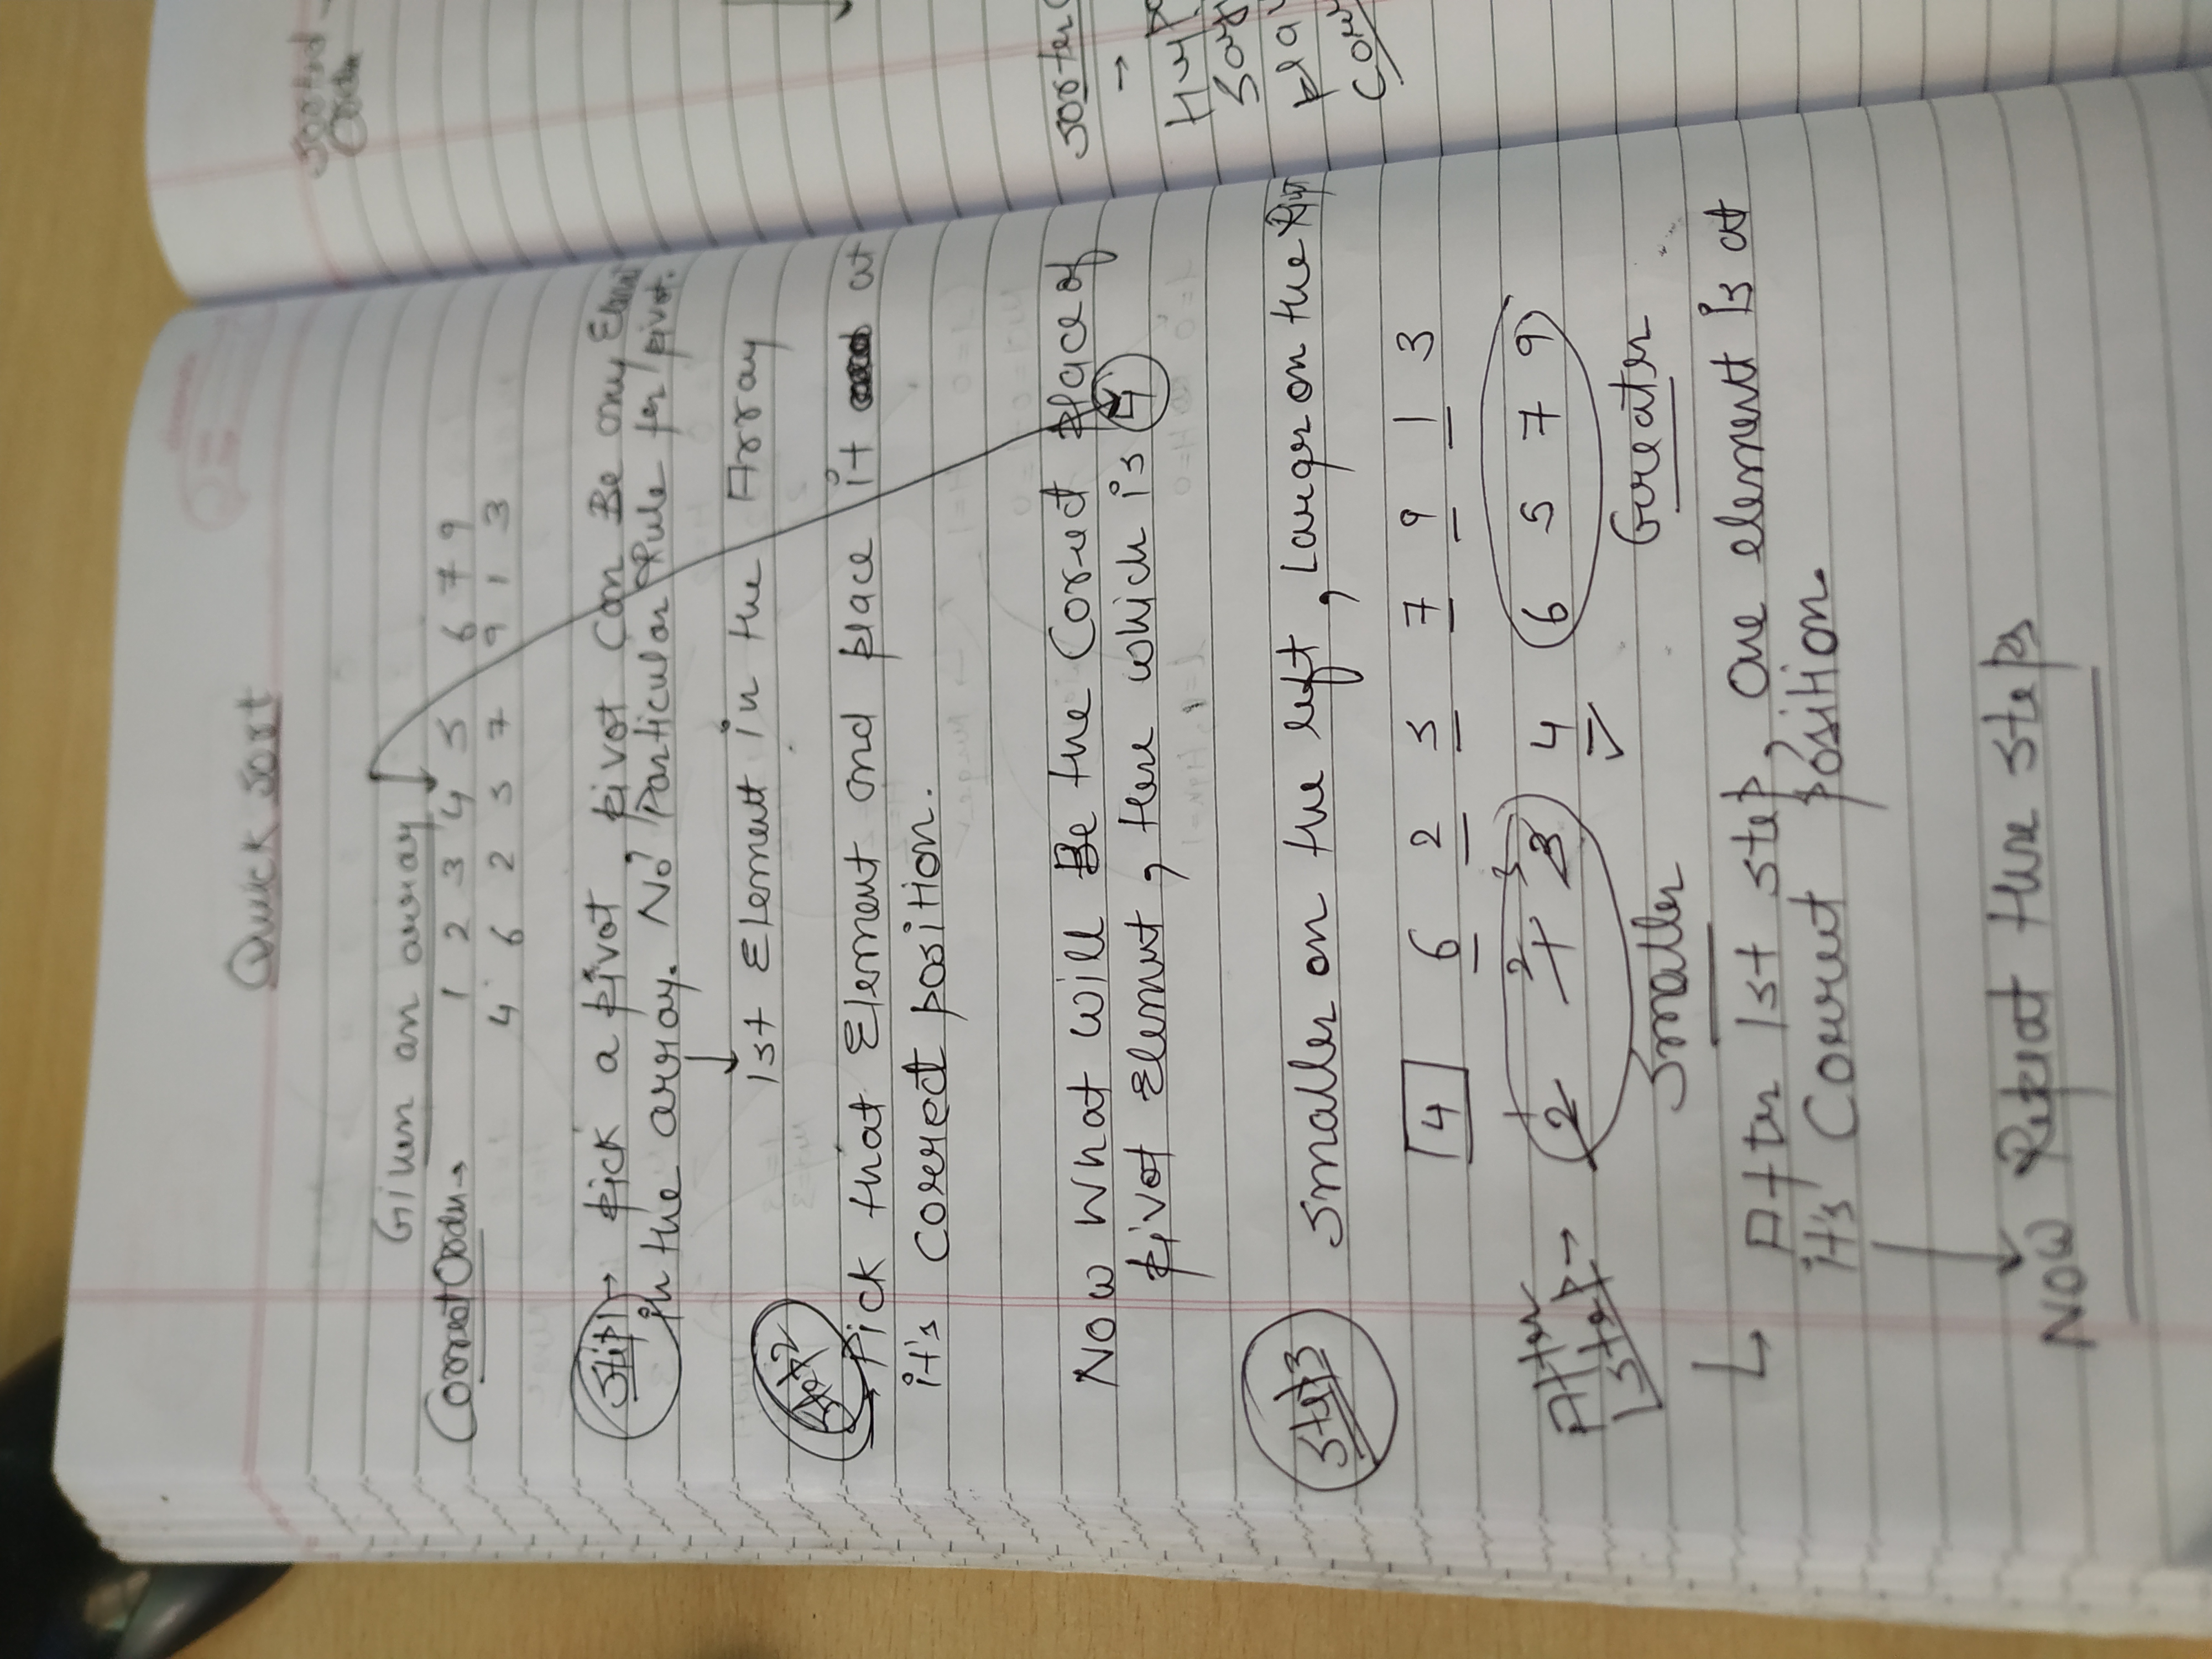 Quick Sort
Given an array
Correct Order → 1 2 3 4 5 6 7 9
4 6 2 5 7 9 1 3
Step 1 → Pick a pivot, pivot Can Be any Element
in the array. No Particular Rule for pivot.
1st Element in the Array
Step 2
→ Pick that Element and place it at
it's correct position.
Now What Will Be the Correct place of
pivot Element, Here which is 4
Step 3 Smaller on the left, Larger on the Right
4 6 2 5 7 9 1 3
1 2 3
After 1 step → 2 1 3 4 6 5 7 9
Smaller Greater
After 1st step, One element is at
it's Correct position.
Now Repeat these steps
Sorted
Order
sorter
→
Say